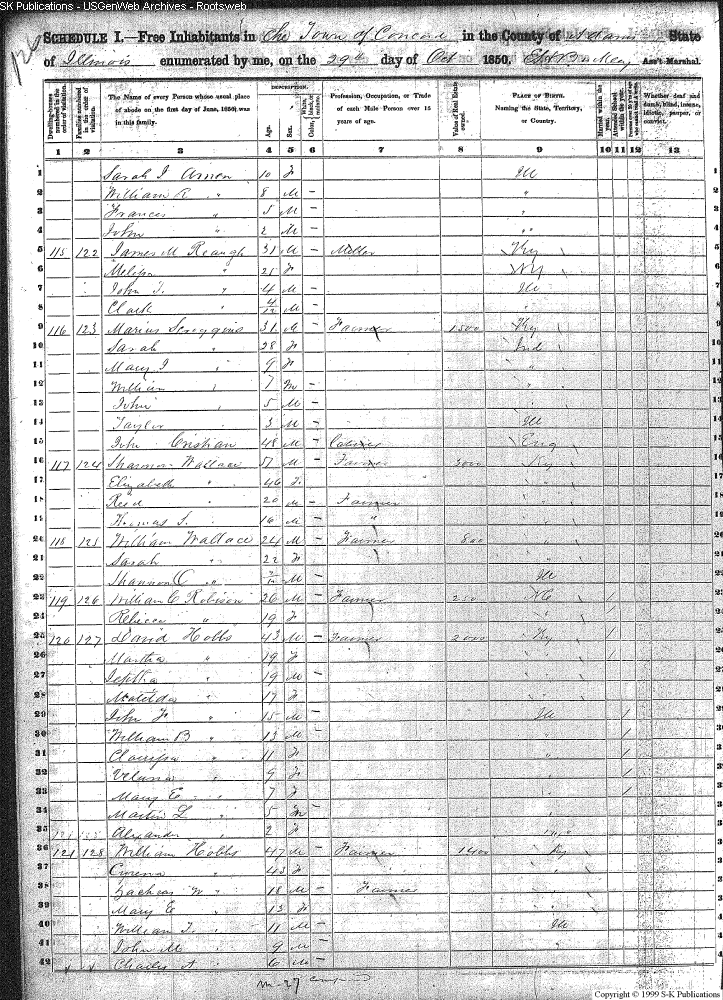 SK Publications - USGenWeb Archives - Rootsweb
SCHEDULE I.—Free Inhabitants in The Town of Concord in the County of Adams State
of Illinois enumerated by me, on the 29th day of Oct 1850. Ass't Marshal.
DESCRIPTION.
Dwelling-houses numbered in the order of visitation.
Families numbered in the order of visitation.
The Name of every Person whose usual place of abode on the first day of June, 1850, was in this family.
Age.
Sex.
Color, White, black, or mulatto.
Profession, Occupation, or Trade of each Male Person over 15 years of age.
Value of Real Estate owned.
PLACE OF BIRTH. Naming the State, Territory, or Country.
Married within the year.
Attended School within the year.
Whether deaf and dumb, blind, insane, idiotic, pauper, or convict.
1 2 3 4 5 6 7 8 9 10 11 12 13
1 Sarah J 10 F Ill
2 William R " 8 M – "
3 Frances " 5 M – "
4 John " 2 M – "
5 115 122 James M Reaugh 31 M – Miller Ky
6 " 21 F NY
7 John T. " 4 M – Ill
8 Clark " 4/12 M – "
9 116 123 Marius Scroggins 31 M – Farmer 1500 Ky
10 Sarah " 28 F Ind
11 Mary J " 9 F "
12 William " 7 M – "
13 John " 5 M – "
14 Taylor 3 M – Ill
15 John Crishan 48 M – Eng
16 117 124 Wallace 51 M – Farmer 3000 Ky
17 Elizabeth " 46 F "
18 Reed 20 M – Farmer "
19 Thomas S. 16 M – " "
20 118 125 William Wallace 24 M – Farmer 800 "
21 Sarah " 22 F "
22 Shannon C " M – Ill
23 119 126 William C Robison 26 M – Farmer 250 NC 1
24 Rebecca " 19 F " 1
25 120 127 David Hobbs 43 M – Farmer 2000 Ky 1
26 Martha " 19 F " 1
27 Jeptha " 19 M – "
28 Matilda " 17 F "
29 John F " 15 M – Ill 1
30 William B " 13 M – " 1
31 Clarissa " 11 F " 1
32 " 9 F " 1
33 Mary E " 7 F " 1
34 Martin L " 5 M – "
35 Alexander " 2 "
36 121 128 William Hobbs 47 M – Farmer 1400 Ky
37 " 43 F "
38 W " 18 M – Farmer "
39 Mary E " 13 F "
40 William T. " 11 M – Ill
41 John M. " 9 M – "
42 Charles A " 6 M – "
Copyright © 1999 S-K Publications